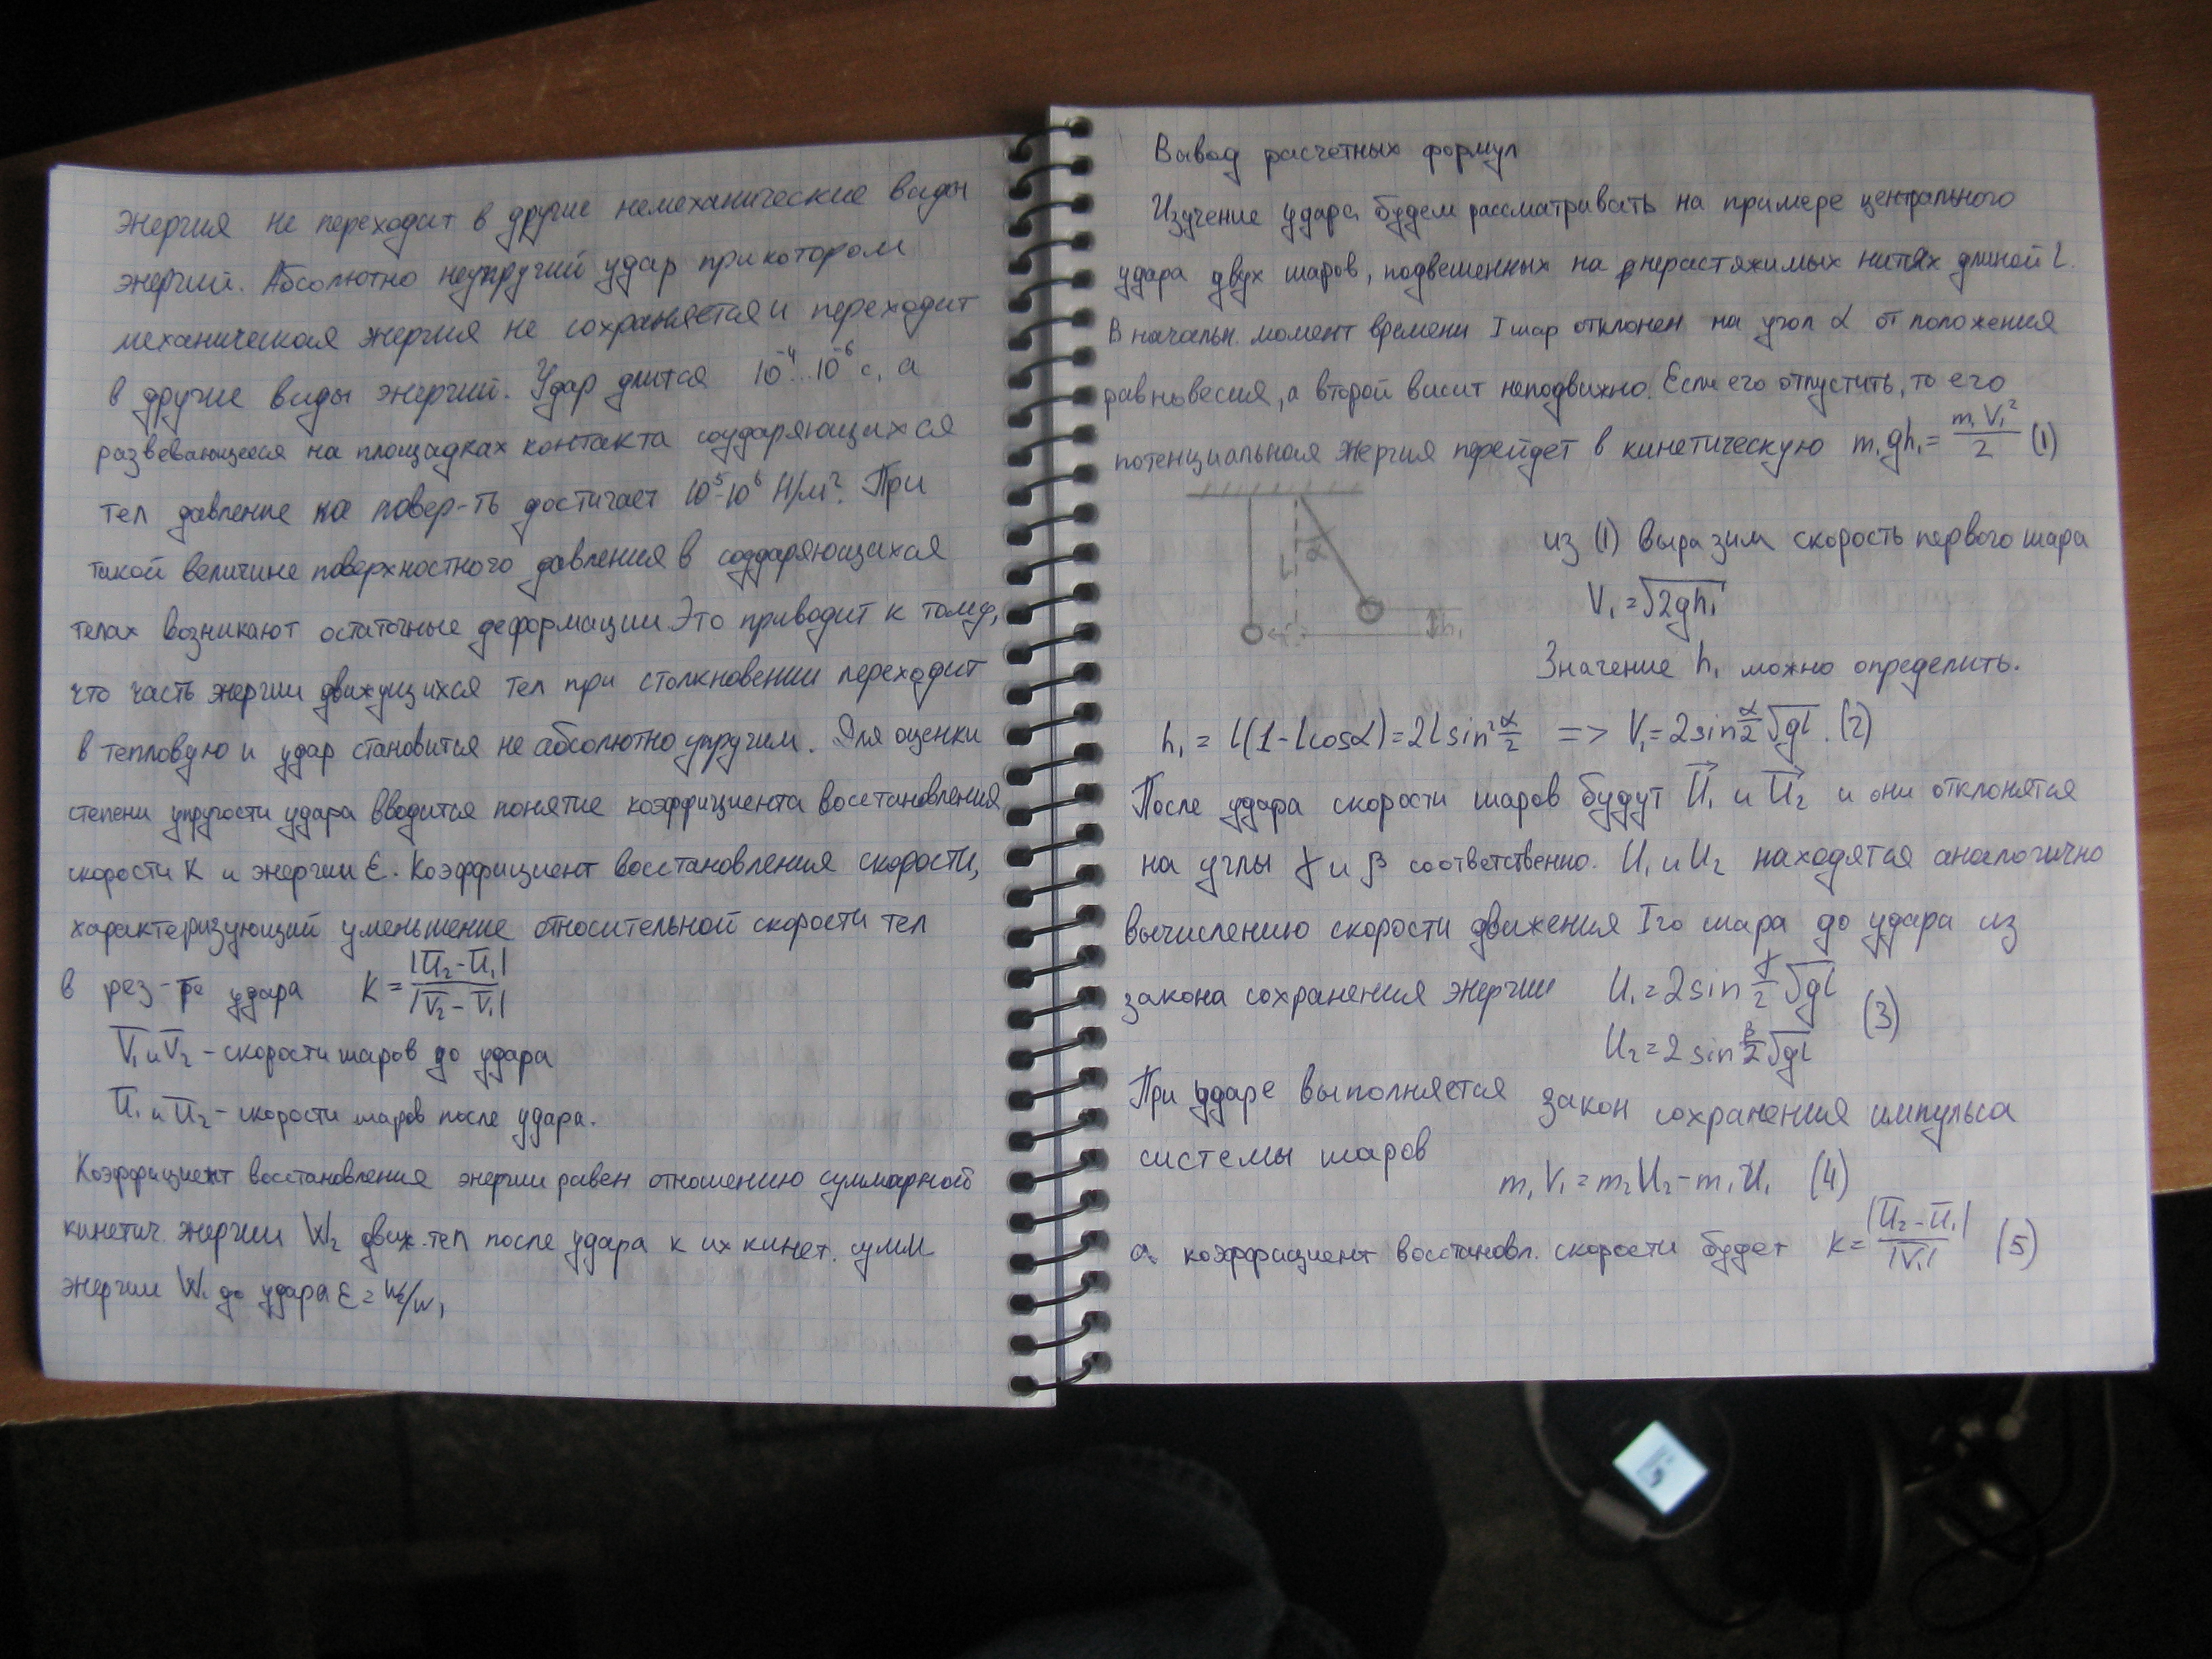 энергия не переходит в другие немеханические виды
энергий. Абсолютно неупругий удар при котором
механическая энергия не сохраняется и переходит
в другие виды энергий. Удар длится 10⁻⁴..10⁻⁶ с, а
развевающееся на площадках контакта соударяющихся
тел давление на повер-ть достигает 10⁵-10⁶ Н/м². При
такой величине поверхностного давления в соударяющихся
телах возникают остаточные деформации. Это приводит к тому,
что часть энергии движущихся тел при столкновении переходит
в тепловую и удар становится не абсолютно упругим. Для оценки
степени упругости удара вводится понятие коэффициента восстановления
скорости K и энергии Ɛ. Коэффициент восстановления скорости,
характеризующий уменьшение относительной скорости тел
в рез-те удара K = |U̅₂ - U̅₁| / |V̅₂ - V̅₁|
V̅₁ и V̅₂ - скорости шаров до удара
U̅₁ и U̅₂ - скорости шаров после удара.
Коэффициент восстановления энергии равен отношению суммарной
кинетич. энергии W₂ движ. тел после удара к их кинет. сумм
энергии W₁ до удара Ɛ = W₂/W₁
Вывод расчетных формул
Изучение удара будем рассматривать на примере центрального
удара двух шаров, подвешенных на нерастяжимых нитях длиной l.
В начальн. момент времени I шар отклонен на угол α от положения
равновесия, а второй висит неподвижно. Если его отпустить, то его
потенциальная энергия перейдет в кинетическую m₁gh₁ = m₁V₁²/2 (1)
α
L
h₁
из (1) выразим скорость первого шара
V₁ = √2gh₁
Значение h₁ можно определить.
h₁ = l(1-lcosα) = 2l sin² α/2 => V₁ = 2sin α/2 √gl. (2)
После удара скорости шаров будут U⃗₁ и U⃗₂ и они отклонятся
на углы γ и β соответственно. U₁ и U₂ находятся аналогично
вычислению скорости движения Iго шара до удара из
закона сохранения энергии U₁ = 2sin γ/2 √gl
U₂ = 2sin β/2 √gl (3)
При ударе выполняется закон сохранения импульса
системы шаров
m₁V₁ = m₂U₂ - m₁U₁ (4)
а коэффициент восстановл. скорости будет K = |U̅₂ - U̅₁| / |V̅₁| (5)